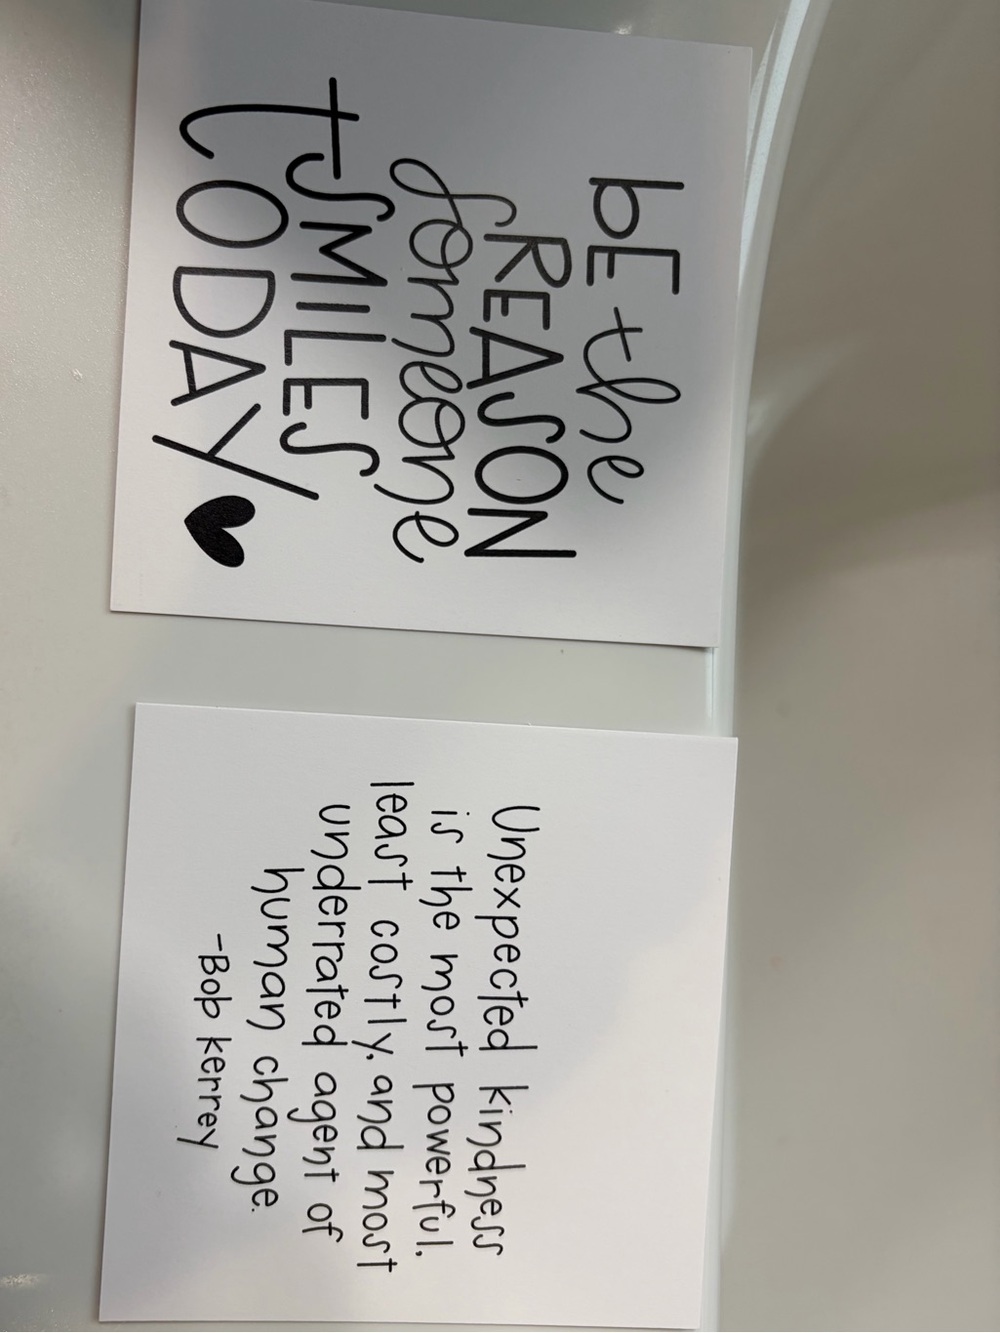 bE the
REASON
someone
SMILES
tODAY
Unexpected kindness
is the most powerful,
least costly, and most
underrated agent of
human change.
-Bob kerrey